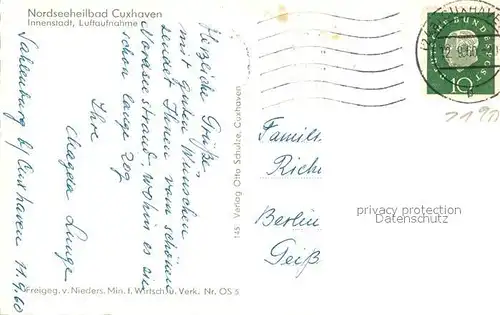 Nordseeheilbad Cuxhaven
Innenstadt, Luftaufnahme
Herzliche Grüße
mit guten Wünschen
sendet Ihnen vom schönen
Nordseestrand wohin es sie
schon lange zog
Ihre
Magda Lange
Sahlenburg b/Cuxhaven 11.9.60
Freigeg. v. Nieders. Min. f. Wirtsch. u. Verk. Nr. OS 5
145 Verlag Otto Schulze, Cuxhaven
DEUTSCHE BUNDESPOST
10
CUXHAVEN
Famili
Riche
Berlin
Geiß
privacy protection
Datenschutz